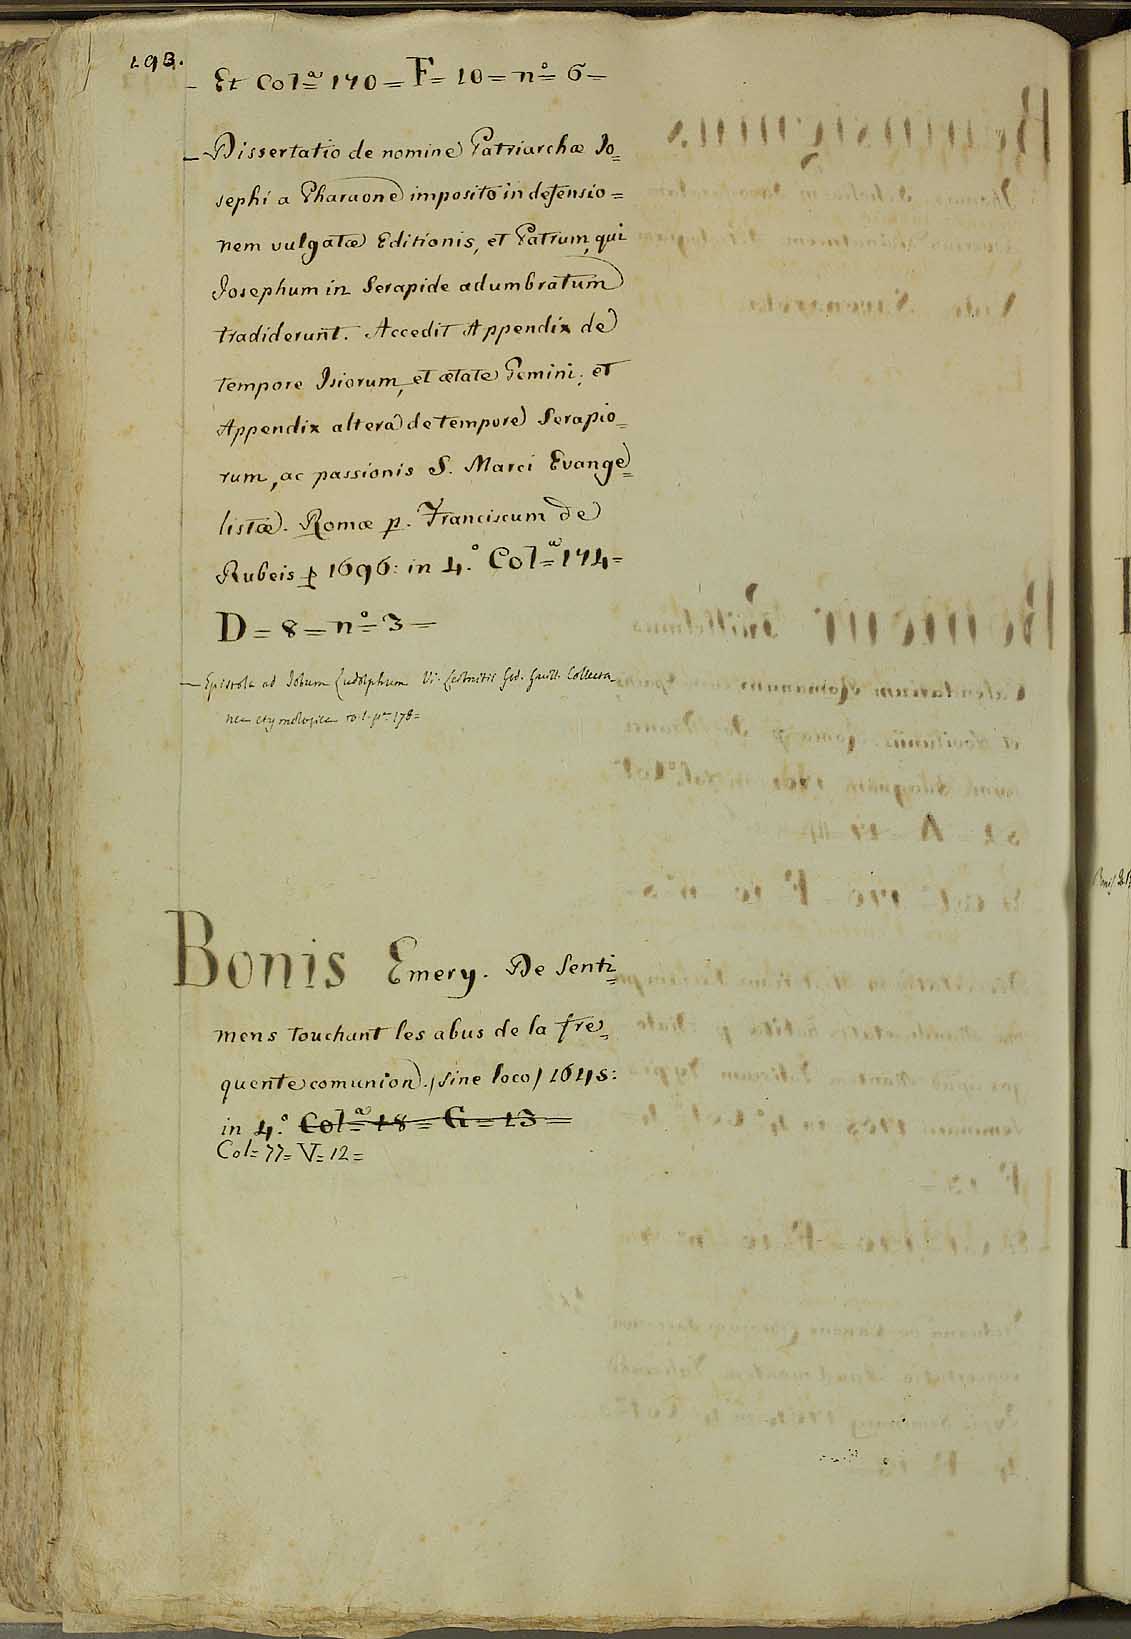 193.
Et Col=ª 170 = F = 10 = nº = 6 =
Dissertatio de nomine Patriarchæ Jo=
sephi a Pharaone imposito in defensio=
nem vulgatæ Editionis, et Patrum, qui
Josephum in Serapide adumbratum
tradiderunt. Accedit Appendix de
tempore Isiorum, et ætate Gemini; et
Appendix altera de tempore Serapio=
rum, ac passionis S. Marci Evange=
listæ. Romæ p. Franciscum de
Rubeis p 1696: in 4.º Col=ª 174=
D = 8 = nº = 3 =
Epistola ad Jobum Ludolphum Vi. God. Guill. Collecta=
nea etymologica pª 178=
Bonis Emery. De Senti=
mens touchant les abus de la fre=
quente comunion. /sine loco/ 1645:
in 4.º Col=ª 18 = G = 13 =
Col= 77= V= 12=